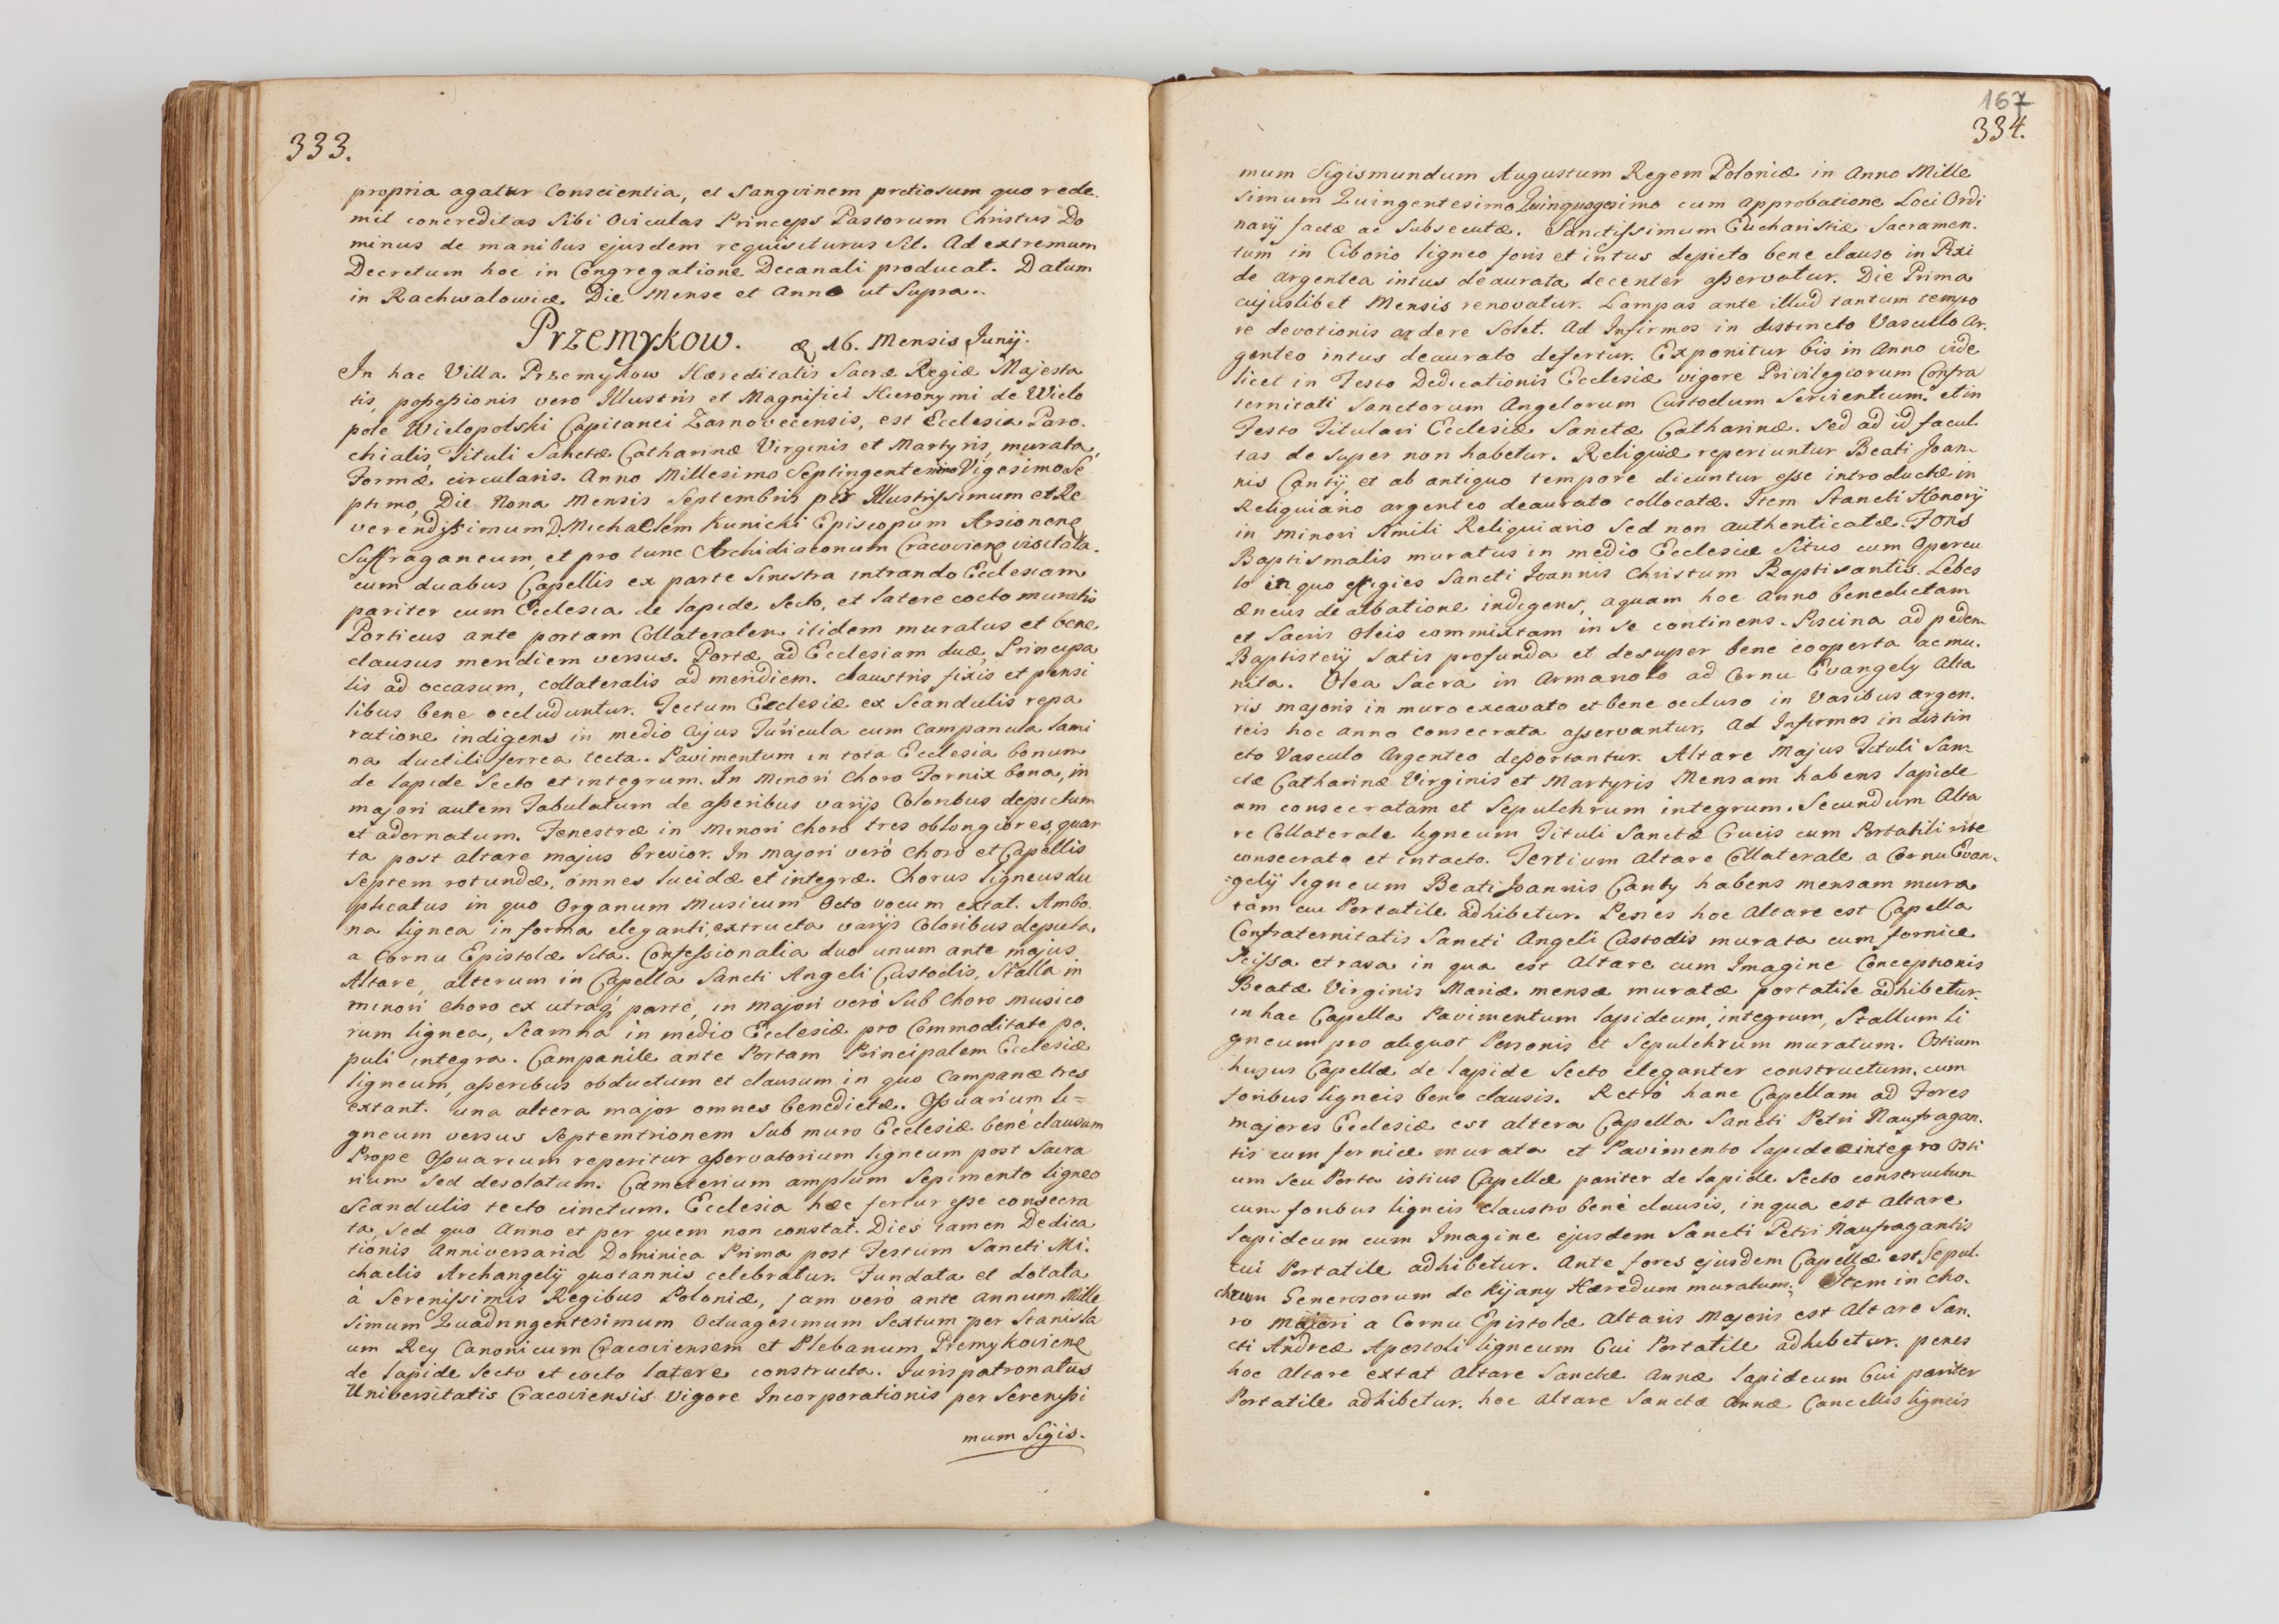 333.
propria agatur Conscientia, et Sangvinem pretiosum quo rede-
mit concreditas Sibi Oviculas Princeps Pastorum Christus Do
minus de manibus ejusdem requisiturus Sit. Ad extremum
Decretum hoc in Congregatione Decanali producat. Datum
in Rachwalowice Die Mense et Anno ut Supra..
Przemykow. 16. Mensis Junij.
In hac Villa Przemykow Hæreditatis Sacræ Regiæ Majesta
tis, possessionis vero Illustris et Magnifici Hieronymi de Wielo
pole Wielopolski Capitanei Zarnovecensis, est Ecclesia Paro.
chialis, Tituli Sanctæ Catharinæ Virginis et Martyris, murata,
Formæ circularis. Anno Millesimo Septingentesimo Vigesimo Se
ptimo, Die Nona Mensis Septembris per Illustrissimum et Re
verendissimum D. Michaelem Kunicki Episcopum Arsionene
Suffraganeum, et pro tunc Archidiaconum Cracoviene visitata.
cum duabus Capellis ex parte Sinistra intrando Ecclesiam
pariter cum Ecclesia de lapide Secto, et latere cocto muratis
Porticus ante portam Collateralem itidem muratus et bene
clausus meridiem versus. Portæ ad Ecclesiam duæ, Principa
lis ad occasum, collateralis ad meridiem. claustris fixis et pensi
libus bene occluduntur. Tectum Ecclesiæ ex Scandulis repa
ratione indigens in medio Cujus Turicula cum Campanula lami
na ductili ferrea tecta. Pavimentum in tota Ecclesia bonum
de lapide Secto et integrum. In Minori Choro Fornix bona, in
majori autem Tabulatum de asseribus varijs Coloribus depictum
et adornatum. Fenestræ in Minori Choro tres oblongiores, quar
ta post altare majus brevior. In majori verò Choro et Capellis
Septem rotundæ, omnes lucidæ et integræ. Chorus ligneus du
plicatus in quo Organum Musicum Octo vocum extat. Ambo.
na lignea in forma eleganti, extructa varijs Coloribus depicta
a Cornu Epistolæ Sita. Confessionalia duo unum ante majus
Altare, alterum in Capella Sancti Angeli Custodis, Stalla in
minori Choro ex utraq parte, in majori verò Sub Choro musico
rum lignea, Scamna in medio Ecclesiæ pro Commoditate po.
puli integra. Campanile ante Portam Principalem Ecclesiæ
ligneum, asseribus obductum et clausum in quo Campanæ tres
extant. una altera major omnes benedictæ. Ossuarium li=
gneum versus Septemtrionem Sub muro Ecclesiæ benè clausum
Prope Ossuarium reperitur asservatorium ligneum post Sacra
rium Sed desolatum. Cæmeterium amplum Sepimento ligneo
Scandulis tecto cinctum. Ecclesia hæc fertur esse consecra
ta, Sed quo Anno et per quem non constat. Dies tamen Dedica
tionis Anniversaria Dominica Prima post Festum Sancti Mi.
chaelis Archangelij quotannis celebratur. Fundata et dotata
à Serenissimis Regibus Poloniæ, jam verò ante annum Mille
Simum Quadringentesimum Octuagesimum Sextum per Stanisla
um Rey Canonicum Cracoviensem et Plebanum Premykoviene
de lapide Secto et cocto latere constructa. Jurispatronatus
Universitatis Cracoviensis vigore Incorporationis per Serenissi
mum Sigis.
167
334.
mum Sigismundum Augustum Regem Poloniæ in Anno Mille
simum Quingentesimo Quinquagesimo cum approbatione Loci Ordi
narij factæ ac Subsecutæ. Sanctissimum Eucharistiæ Sacramen.
tum in Ciborio ligneo foris et intus depicto bene clauso in Pixi
de argentea intus deaurata decenter asservatur. Die Prima
cujuslibet Mensis renovatur. Lampas ante illud tantum tempo
re devotionis ardere Solet. Ad Infirmos in distincto Vasculo Ar.
genteo intus deaurato defertur. Exponitur bis in Anno vide
licet in Festo Dedicationis Ecclesiæ vigore Privilegiorum Confra
ternitati Sanctorum Angelorum Custodum Servientium. et in
Festo Titulari Ecclesiæ Sanctæ Catharinæ. Sed ad id facul
tas de Super non habetur. Reliquiæ reperiuntur Beati Joan-
nis Cantij, et ab antiquo tempore dicuntur esse introductæ in
Reliquiario argenteo deaurato collocatæ. Item Sancti Honorij
in minori Simili Reliquiario Sed non authenticatæ. Fons
Baptismalis muratus in medio Ecclesiæ Situs cum Opercu
lo in quo effigies Sancti Joannis Christum Baptisantis. Lebes
æneus dealbatione indigens, aquam hoc Anno benedictam
et Sacris Oleis commixtam in Se continens. Piscina ad pedem
Baptisterij Satis profunda et desuper bene cooperta ac mu.
nita. Olea Sacra in Armariolo ad Cornu Evangely Alta
ris majoris in muro excavato et bene occluso in Vasibus argen.
teis hoc anno consecrata asservantur, Ad Infirmos in distin
cto Vasculo Argenteo deportantur. Altare Majus Tituli San-
ctæ Catharinæ Virginis et Martyris Mensam habens lapide
am consecratam et Sepulchrum integrum. Secundum Alta
re Collaterale ligneum Tituli Sanctæ Crucis cum Portatili rite
consecrato et intacto. Tertium altare Collaterale a Cornu Evan.
gelij ligneum Beati Joannis Canty habens mensam mura
tam cui Portatile adhibetur. Penes hoc Altare est Capella
Confraternitatis Sancti Angeli Custodis murata cum fornice
Scissa et rasa in qua est Altare cum Imagine Conceptionis
Beatæ Virginis Mariæ mensæ muratæ portatile adhibetur.
in hac Capella Pavimentum lapideum, integrum, Stallum li
gneum pro aliquot Personis et Sepulchrum muratum. Ostium
hujus Capellæ de lapide Secto eleganter constructum, cum
foribus ligneis bene clausis. Retrò hanc Capellam ad Fores
majores Ecclesiæ est altera Capella Sancti Petri Naufragan.
tis cum fornice murata et Pavimento lapideo integro Osti
um Seu Porta istius Capellæ pariter de lapide Secto constructum
cum foribus ligneis claustro benè clausis, in qua est altare
lapideum cum Imagine ejusdem Sancti Petri Naufragantis
cui Portatile adhibetur. Ante fores ejusdem Capellæ est Sepul.
chrum Generosorum de Kijany Hæredum muratum; Item in Cho.
ro Majori a Cornu Epistolæ Altaris Majoris est Altare San.
cti Andreæ Apostoli ligneum Cui Portatile adhibetur. penes
hoc Altare extat Altare Sanctæ Annæ lapideum Cui pariter
Portatile adhibetur. hoc altare Sanctæ Annæ Cancellis ligneis